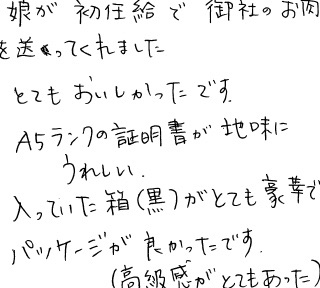 娘が初任給で御社のお肉
を送ってくれました
とてもおいしかったです.
A5ランクの証明書が地味に
うれしい.
入っていた箱(黒)がとても豪華で
パッケージが良かったです.
(高級感がとてもあった)